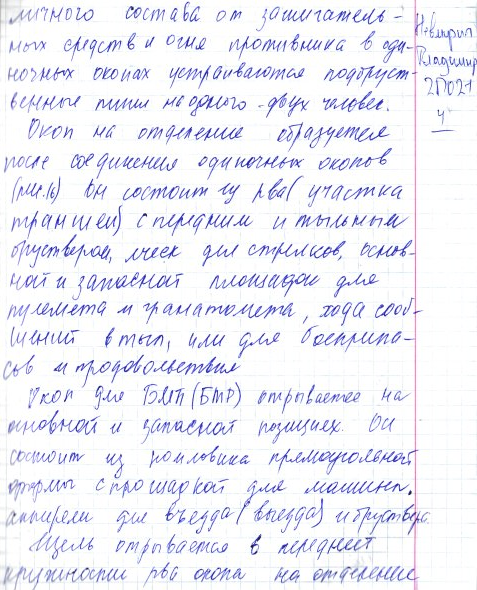 личного состава от зажигатель-
ных средств и огня противника в оди-
ночных окопах устраиваются подбруст-
венные ниши на одного-двух человек.
Окоп на отделение образуется
после соединения одиночных окопов
(рис.16) Он состоит из рва (участка
траншеи) с передним и тыльным
бруствером, ячеек для стрелков, основ-
ной и запасной площадок для
пулемета и гранатомета, хода сооб-
щений в тыл, или для боеприпа-
сов и продовольствия
Окоп для БМП (БТР) отрывается на
основной и запасной позициях. Он
состоит из котлована прямоугольной
формы с площадкой для машины,
аппарели для въезда (выезда) и бруствера.
Щель отрывается в передней
крутости рва окопа на отделение
Владимир
2П021
4